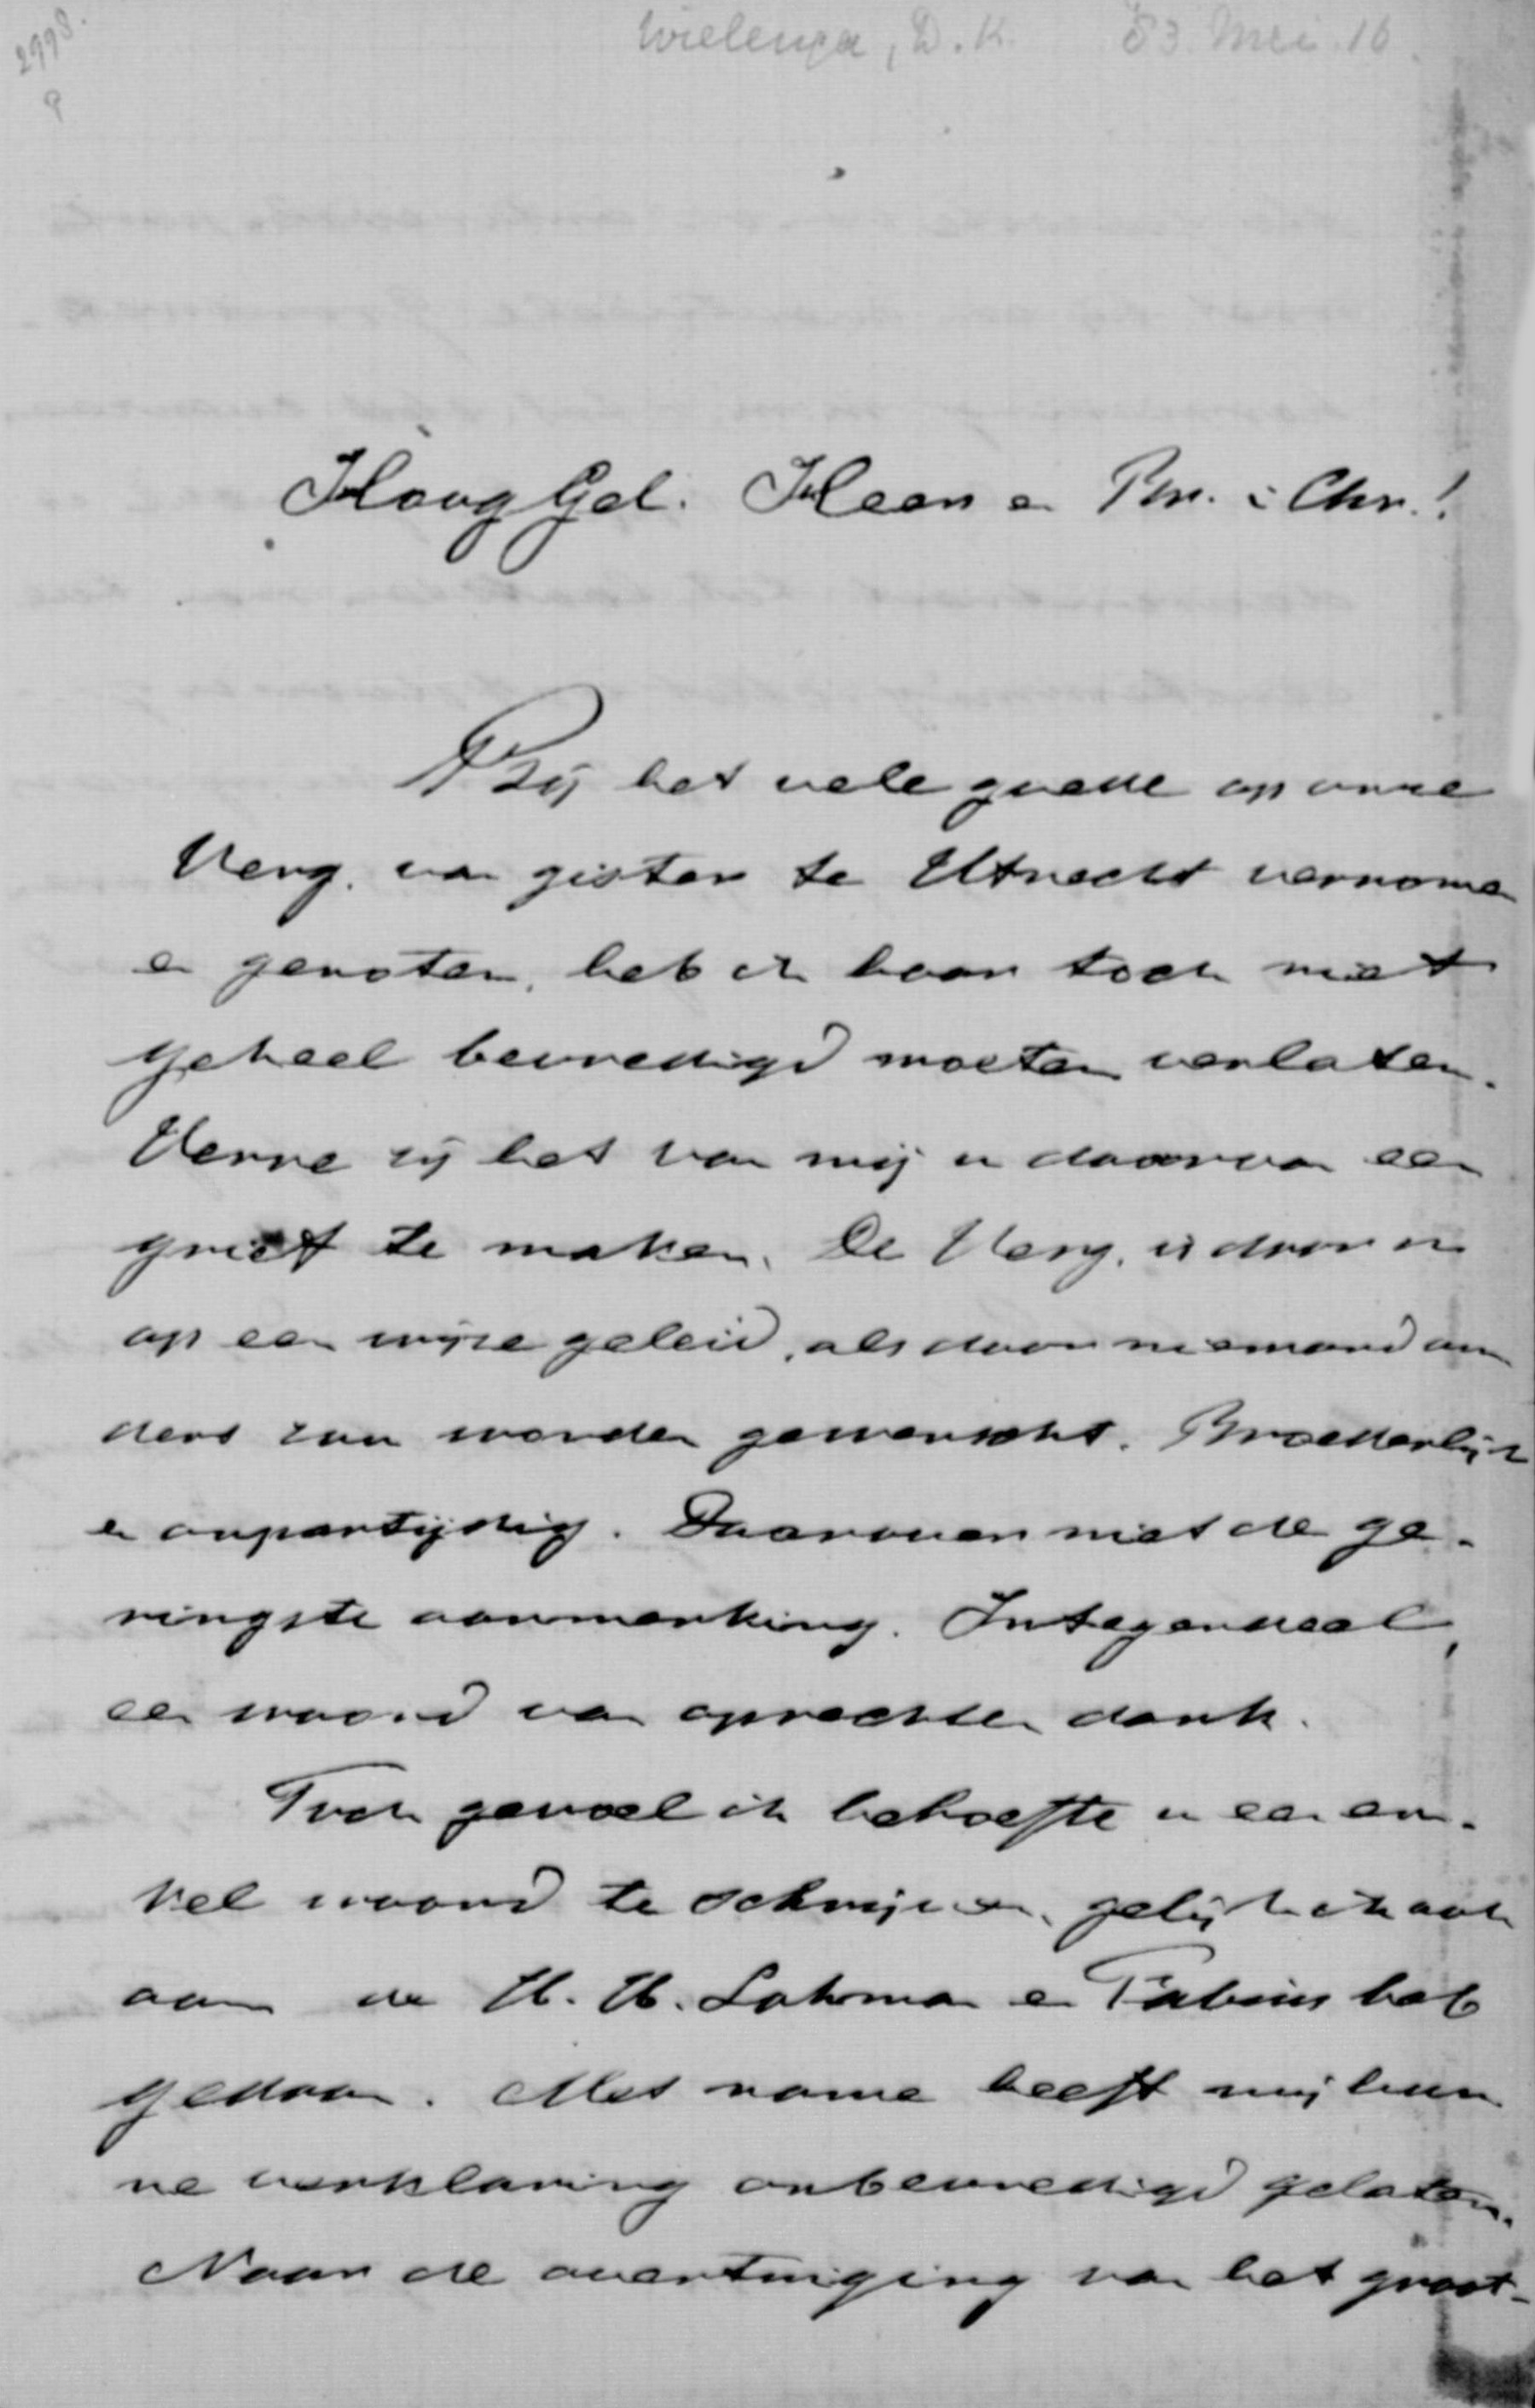 2998.
Wielenga, D. K. 83 Mei 16.
HoogGel. Heer en Br. i Chr.!
Bij het vele goede op onze
Verg. van gister te Utrecht vernomen
en genoten, heb ik haar toch niet
geheel bevredigd moeten verlaten.
Verre zij het van mij u daarvan een
grief te maken. De Verg. is door u
op een wijze geleid, als door niemand an
ders kan worden gewenscht. Broederlijk
en onpartijdig. Daarover niet de ge-
ringste aanmerking. Integendeel,
een woord van oprechten dank.
Toch gevoel ik behoefte u een en-
kel woord te schrijven, gelijk ik ook
aan de H. H. Lohman en Fabius heb
gedaan. Met name heeft mij hun
ne verklaring onbevredigd gelaten.
Naar de overtuiging van het groot-